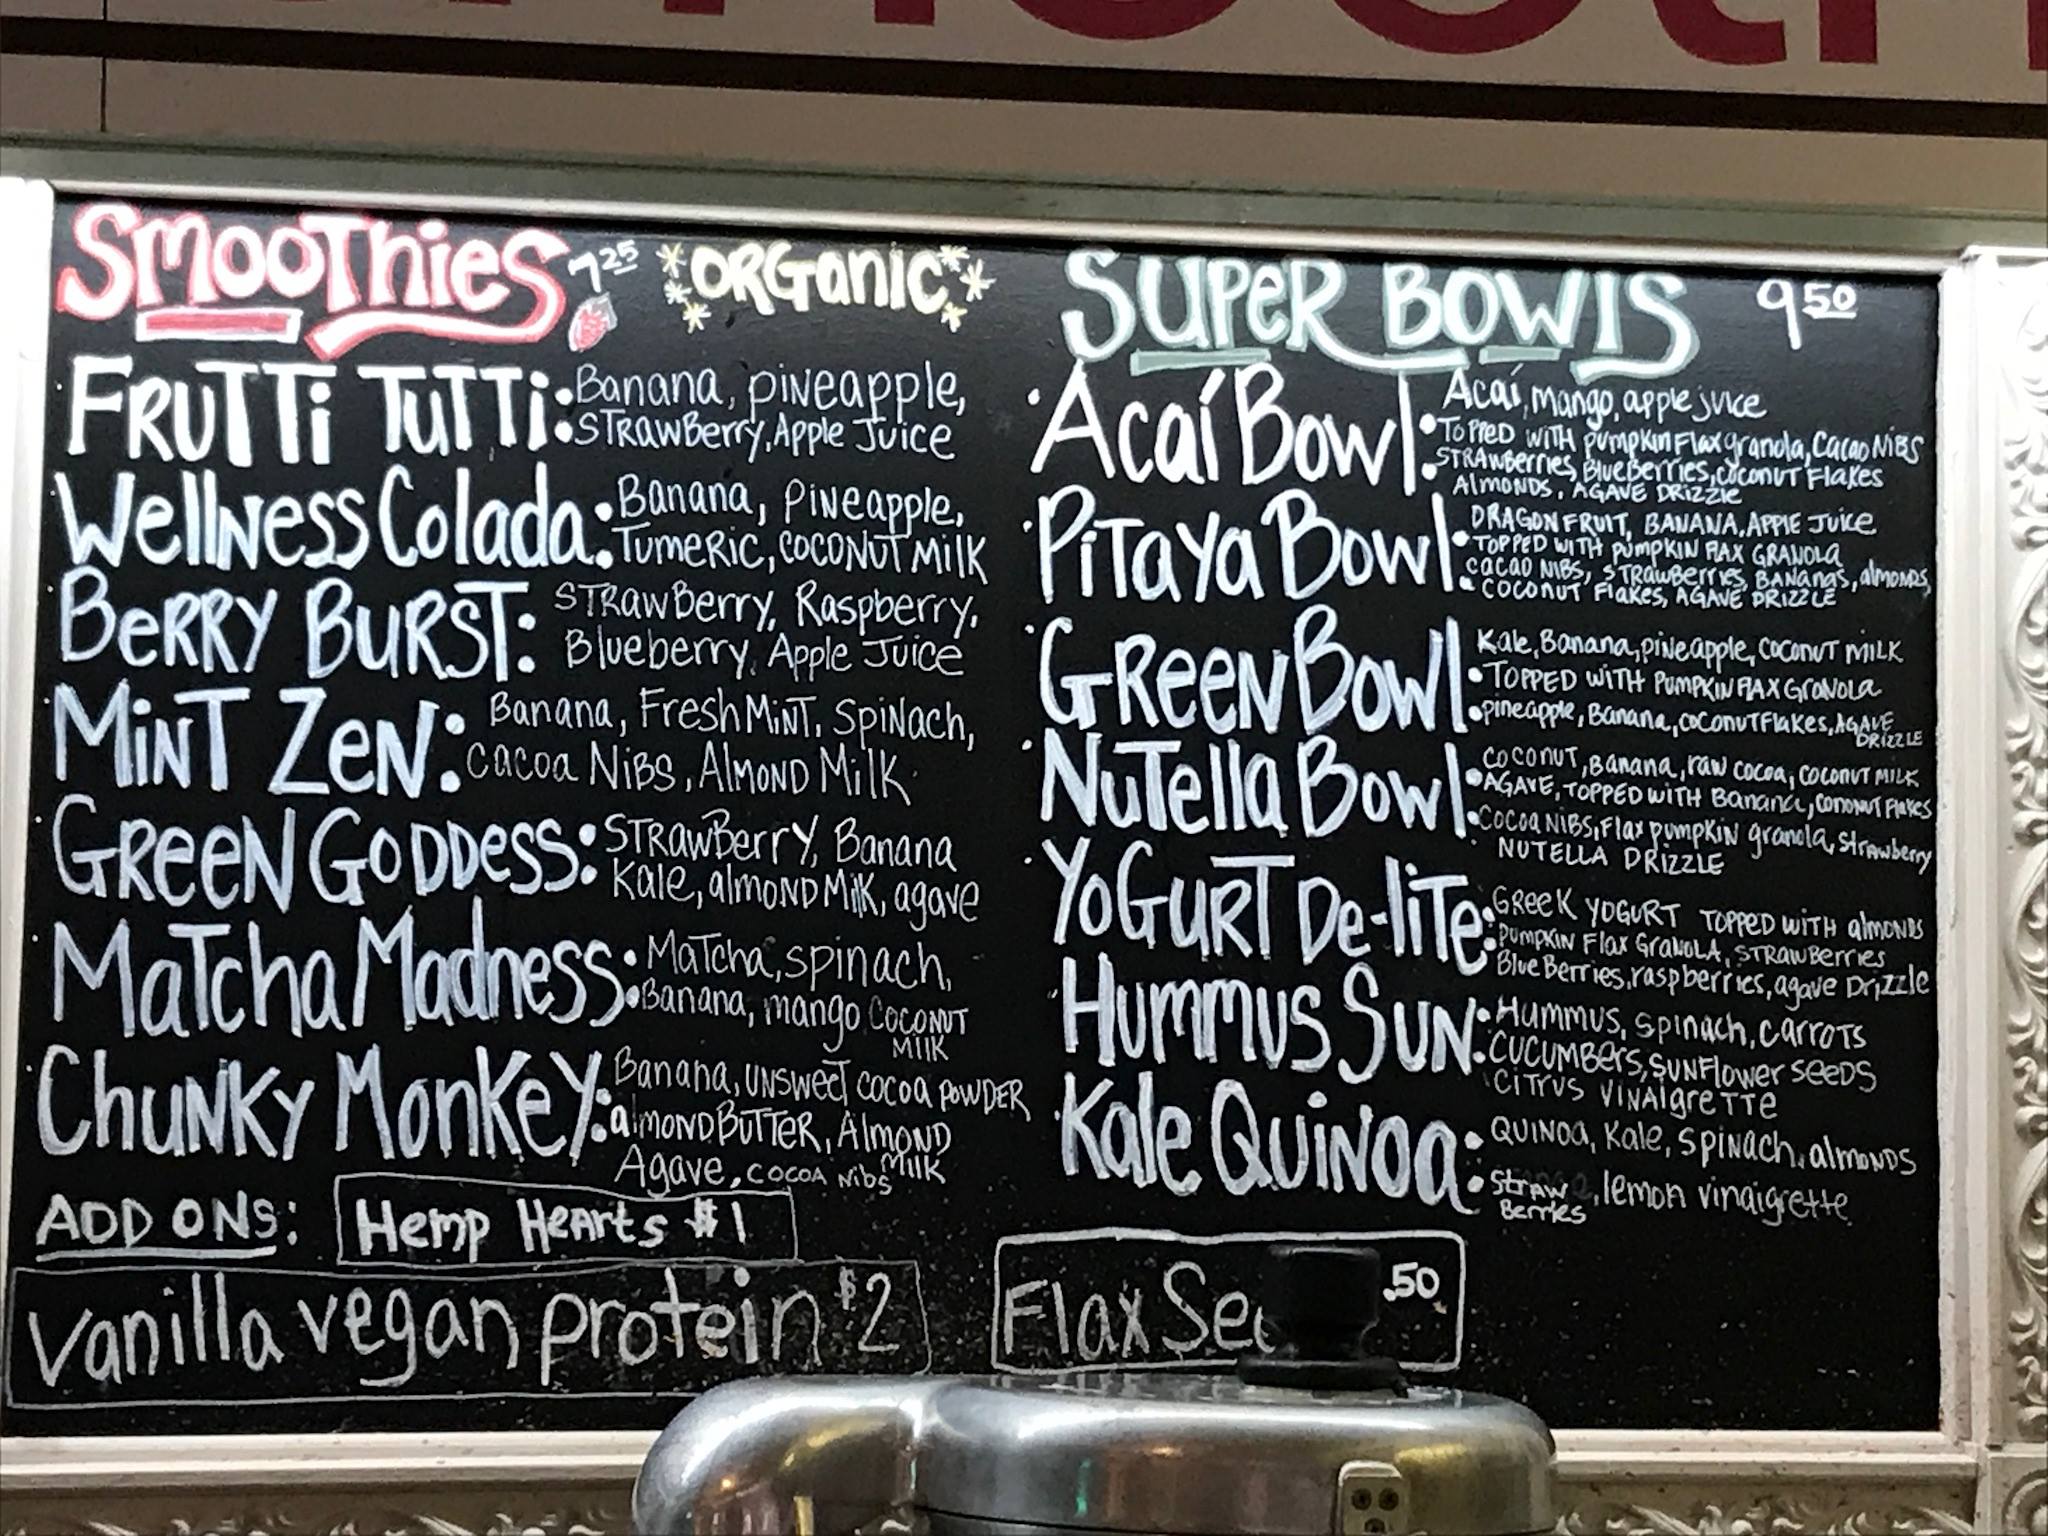 SMOOTHIES 7.25 *ORGANIC*
FRUTTI TUTTI: Banana, Pineapple,
STRAWBERRY, Apple Juice
Wellness Colada: Banana, Pineapple,
Tumeric, COCONUT MILK
BERRY BURST: STRAWBerry, Raspberry,
Blueberry, Apple Juice
MINT ZEN: Banana, Fresh MINT, Spinach,
Cacoa NIBS, ALMOND MILK
GREEN GODDESS: STRAWBERRY, Banana
Kale, almond MILK, agave
Matcha Madness: Matcha, spinach,
Banana, mango COCONUT
MILK
Chunky Monkey: Banana, UNSWEET COCOA POWDER
almond BUTTER, ALMOND
MILK
Agave, COCOA NIBS
ADD ONS: Hemp Hearts $1
vanilla vegan protein $2
SUPER BOWLS 9.50
Acaí Bowl: Acaí, mango, apple juice
TOPPED WITH pumpkin Flax granola, Cacao NIBS
STRAWberries, BlueBerries, coconut Flakes
ALMONDS, AGAVE DRIZZLE
PITAYA Bowl: DRAGON FRUIT, BANANA, APPLE JUICE
TOPPED WITH PUMPKIN FLAX GRANOLA
CACAO NIBS, STRAWBERRIES, BANANAS, almonds,
COCONUT Flakes, AGAVE DRIZZLE
GREEN BOWL: Kale, Banana, pineapple, COCONUT MILK
TOPPED WITH PUMPKIN FLAX GRANOLA
pineapple, Banana, coconut Flakes, AGAVE
DRIZZLE
NUTELLA BOWL: COCONUT, Banana, raw cocoa, coconut MILK
AGAVE, TOPPED WITH Banana, cononut Flakes
Cocoa NIBS, Flax pumpkin granola, Strawberry
NUTELLA DRIZZLE
YOGURT De-liTe: GREEK YOGURT TOPPED WITH almonds
PUMPKIN Flax GRANOLA, STRAWBERRIES
BlueBerries, raspberries, agave Drizzle
HUMMUS SUN: HUMMUS, Spinach, CARROTS
CUCUMBERS, SUNFlower SEEDS
CITRUS VINAIGRETTE
Kale QUINOA: QUINOA, Kale, Spinach, almonds
STRAW , lemon vinaigrette
Berries
Flax .50